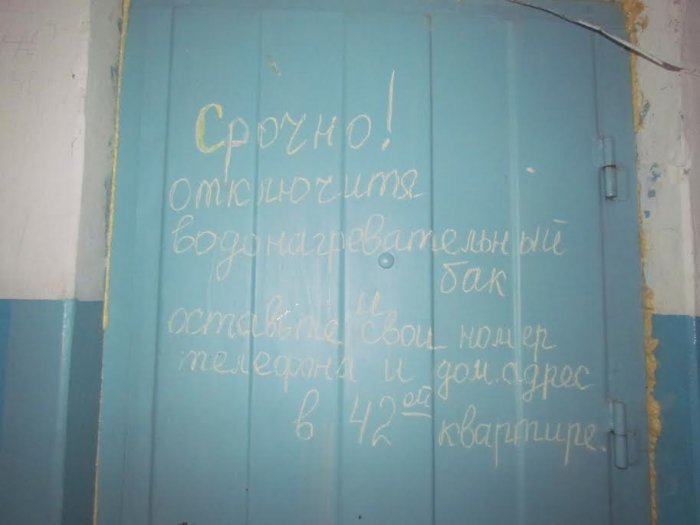 Срочно!
отключитя
водонагревательный
бак
и
оставьте свой номер
телефона и дом. адрес
в 42ой квартире.